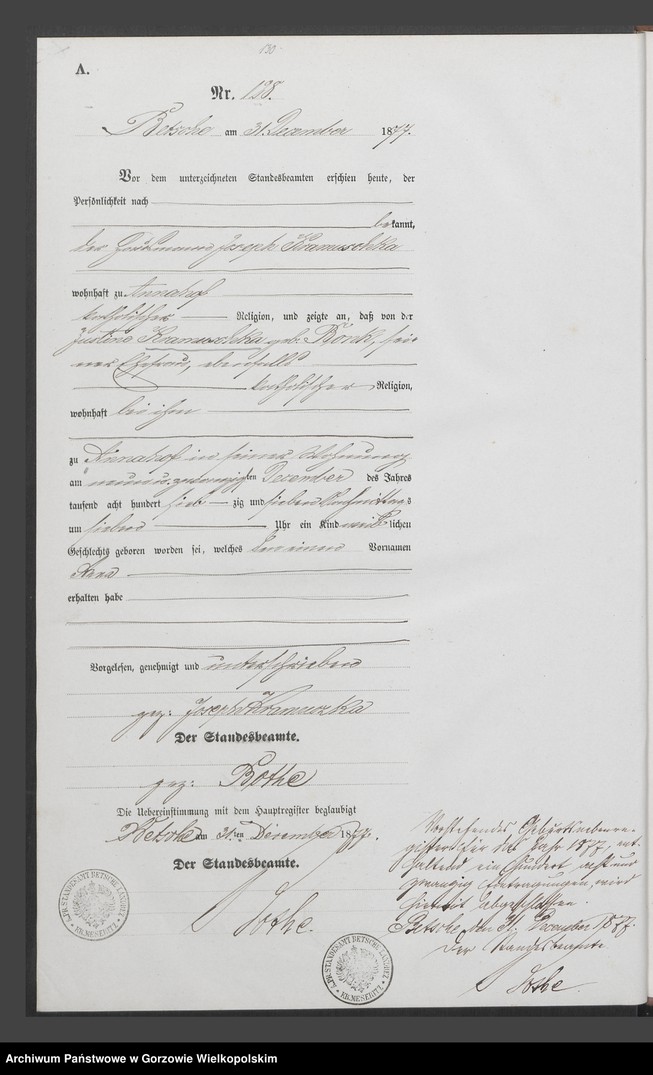 130.
A.
Nr. 128.
Betsche am 31. December 1877.
Vor dem unterzeichneten Standesbeamten erschien heute, der
Persönlichkeit nach
bekannt,
der Joseph Kramuschka
wohnhaft zu Annahof
katholischer Religion, und zeigte an, daß von der
Justine Kramuschka geb. Bonk, sei-
ner Ehefrau, ebenfalls
katholischer Religion,
wohnhaft bei ihm
zu Annahof in seiner Wohnung
am neunundzwanzigsten December des Jahres
tausend acht hundert sieb zig und sieben Vormittags
um sieben Uhr ein Kind weiblichen
Geschlechts geboren worden sei, welches den einen Vornamen
erhalten habe
Vorgelesen, genehmigt und unterschrieben
gez: Joseph Kramuzka
Der Standesbeamte.
gez: Bothe
Die Uebereinstimmung mit dem Hauptregister beglaubigt
Betsche am 31.ten December 1877.
Der Standesbeamte.
Bothe.
K.PR. STANDESAMT BETSCHE LANDBEZ.
KR. MESERITZ
Vorstehendes Geburtsnebenre-
gister für das Jahr 1877, ent-
haltend ein hundert acht und
zwanzig Eintragungen, wird
hiermit abgeschlossen.
Betsche, den 31. December 1877.
Der Standesbeamte
Bothe.
K.PR. STANDESAMT BETSCHE LANDBEZ.
KR. MESERITZ
Archiwum Państwowe w Gorzowie Wielkopolskim